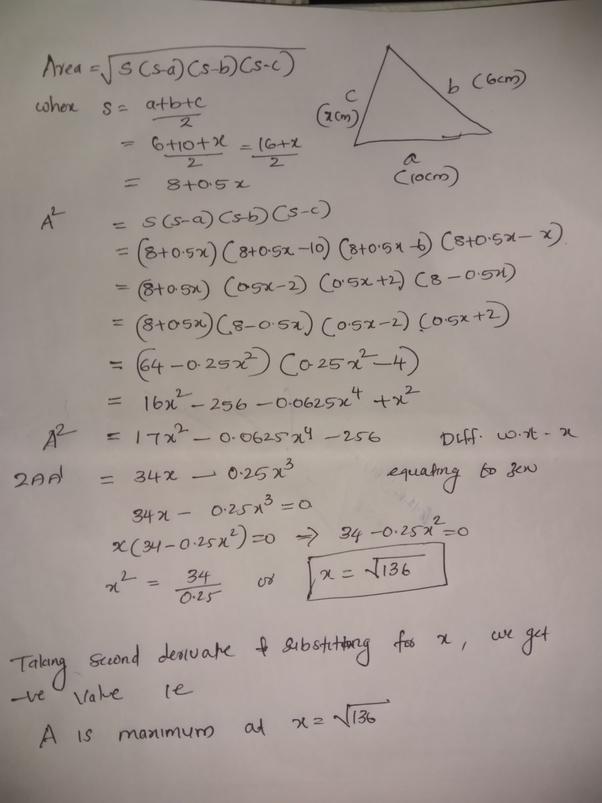 Area = √S(s-a)(s-b)(s-c)
c
(xcm)
b (6cm)
a
(10cm)
where s = a+b+c / 2
= 6+10+x / 2 = 16+x / 2
= 8+0.5x
A² = s(s-a)(s-b)(s-c)
= (8+0.5x)(8+0.5x-10)(8+0.5x-6)(8+0.5x-x)
= (8+0.5x)(0.5x-2)(0.5x+2)(8-0.5x)
= (8+0.5x)(8-0.5x)(0.5x-2)(0.5x+2)
= (64-0.25x²)(0.25x²-4)
= 16x²-256-0.0625x⁴+x²
A² = 17x²-0.0625x⁴-256 Diff. w.r.t-x
2AA' = 34x-0.25x³ equating to zero
34x-0.25x³=0
x(34-0.25x²)=0 ⇒ 34-0.25x²=0
x² = 34 / 0.25 or x = √136
Taking second derivate & substitting for x, we get
-ve value ie
A is maximum at x = √136